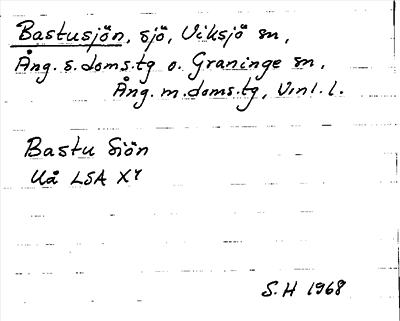 Bastusjön, sjö, Viksjö sn,
Ång. s. doms.tg o. Graninge sn,
Ång. m. doms.tg, Vnl. l.
Bastu Siön
Uå LSA X⁴
S.H 1968